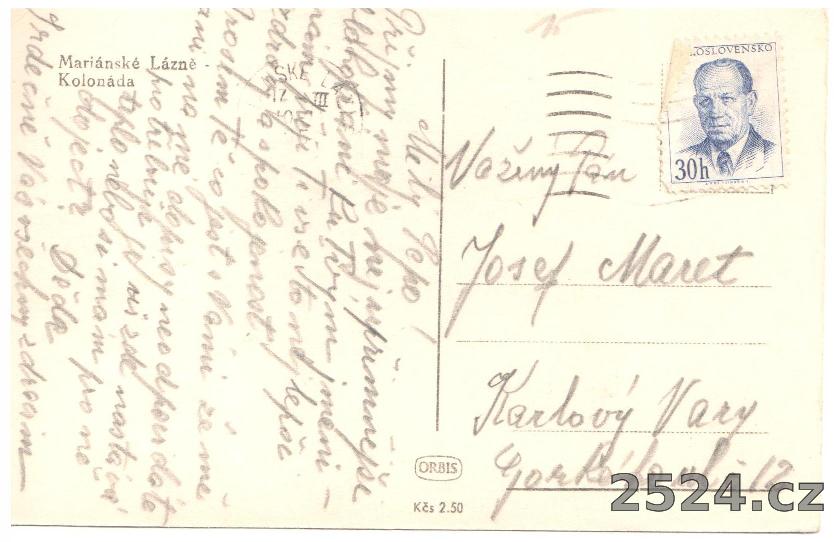 Mariánské Lázně -
Kolonáda
Milý Pepo!
Přijmy moje nejupřímnější
blahopřání k Tvým jmeni-
nám, přeji Ti vše to nejlepší
zdraví a spokojenost!
Prosím tě co jest s Vámi že mě
ani na mé dopisy neodpovídáte
potřebuji
teplo nebo si mám pro ně
dojeti? Děda
Srdečně Vás všechny zdravím
ČESKOSLOVENSKO
30h
Vážený Pan
Josef Maret
Karlový Vary
Gorkého ul. 12
ORBIS
Kčs 2.50
2524.cz